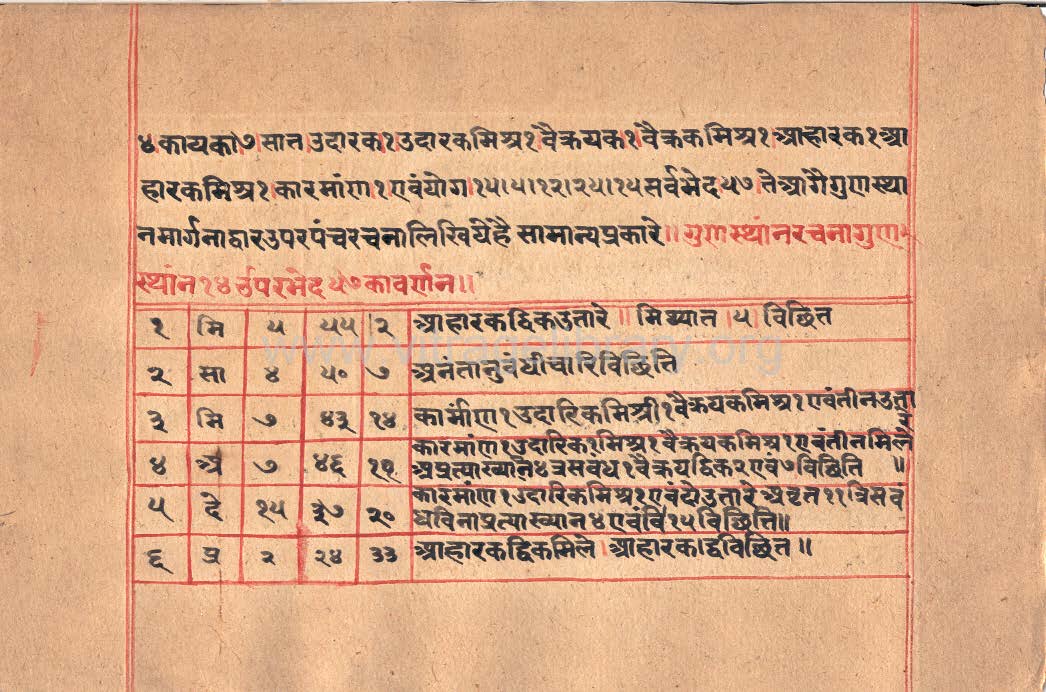 ४कायका७।सात।उदारक१।उदारकमिश्र१।वैक्रयक१।वैक्रकमिश्र१।आहारक१आ
हारकमिश्र१।कारमांण१।एवंयोग।१५।५।१२।२५।१५सर्वभेद५७।तेआगैगुणस्था
नमार्गनाद्वारउपरपंचरचनालिखियेहै सामान्यप्रकारे॥गुणस्थांनरचनागुण
स्थांन१४उपरभेद५७कावर्णन॥
१ मि ५ ५५ २ आहारकद्विकउतारे॥मिथ्यात।५।विछित
२ सा ४ ५० ७ अनंतानुबंधीचारिविछिति
३ मि ७ ४३ १४ कार्मांण१उदारिकमिश्री१वैक्रयकमिश्र१एवंतीनउतारे
कारमांण१।उदारिक१मिश्र१वैक्रयकमिश्र१।एवंतीनमिले
४ अ ७ ४६ ११ अप्रत्याख्यांन४त्रसबंध१वैक्रयद्विक२एवं७विछिति॥
कारमांण१उदारिकमिश्र१एवंदोउतारेअवृत११त्रिसवं
५ दे १५ ३७ २० धविनाप्रत्याख्यान४एवंवि१५विछित्ति॥
६ प्र २ २४ ३३ आहारकद्विकमिले।आहारकद्विविछित॥
www.vitragelibrary.org